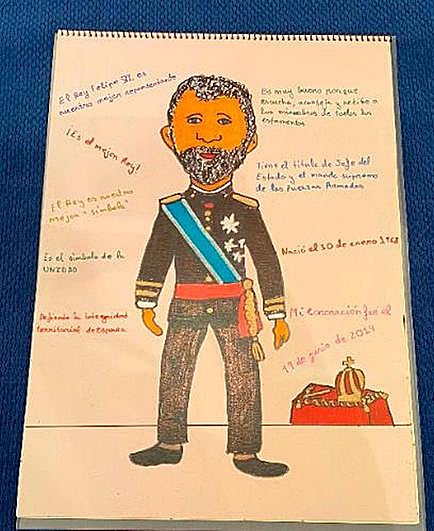 El Rey Felipe VI, es
nuestro mejor representante
¡Es el mejor Rey!
El Rey es nuestro
mejor "símbolo"
Es el símbolo de la
UNIDAD
Defiende la integridad
territorial de España
Es muy bueno porque
escucha, aconseja y recibe a
los miembros de todos los
estamentos
Tiene el título de Jefe del
Estado y el mando supremo
de las Fuerzas Armadas
Nació el 30 de enero 1968
Mi Coronación fue el
19 de junio de 2014